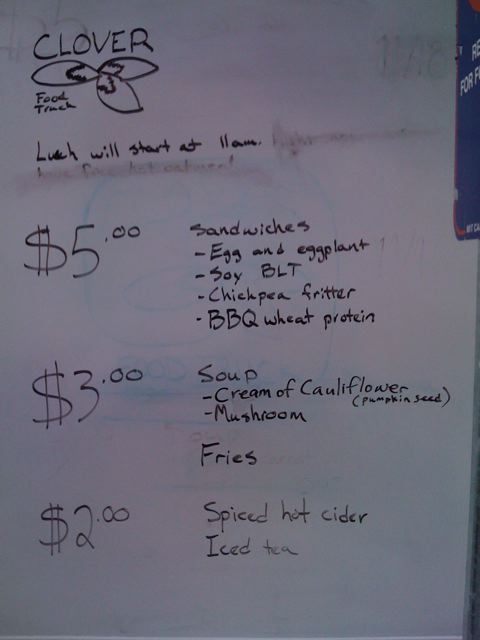 CLOVER
Food
Truck
Lunch will start at 11am.
$5.00 Sandwiches
- Egg and eggplant
- Soy BLT
- Chickpea fritter
- BBQ wheat protein
$3.00 Soup
- Cream of Cauliflower
(pumpkin seed)
- Mushroom
Fries
$2.00 Spiced hot cider
Iced tea